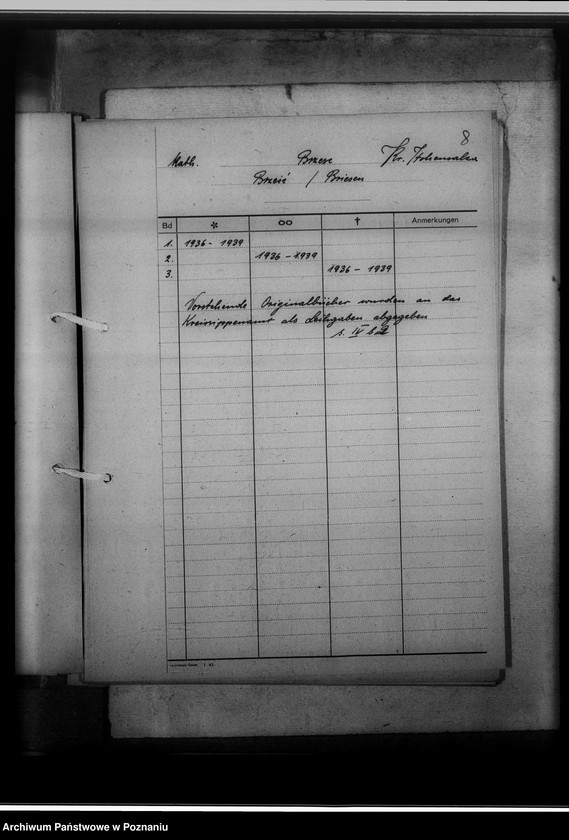 8
Kath. Brzesc Kr. Hohensalza
Brześć / Briesen
Bd * oo † Anmerkungen
1. 1936 - 1939
2. 1936 - 1939
3. 1936 - 1939
Vorstehende Originalbücher wurden an das
Kreissippenamt als Leihgaben abgegeben
s. IV b 2
1 43
Archiwum Państwowe w Poznaniu